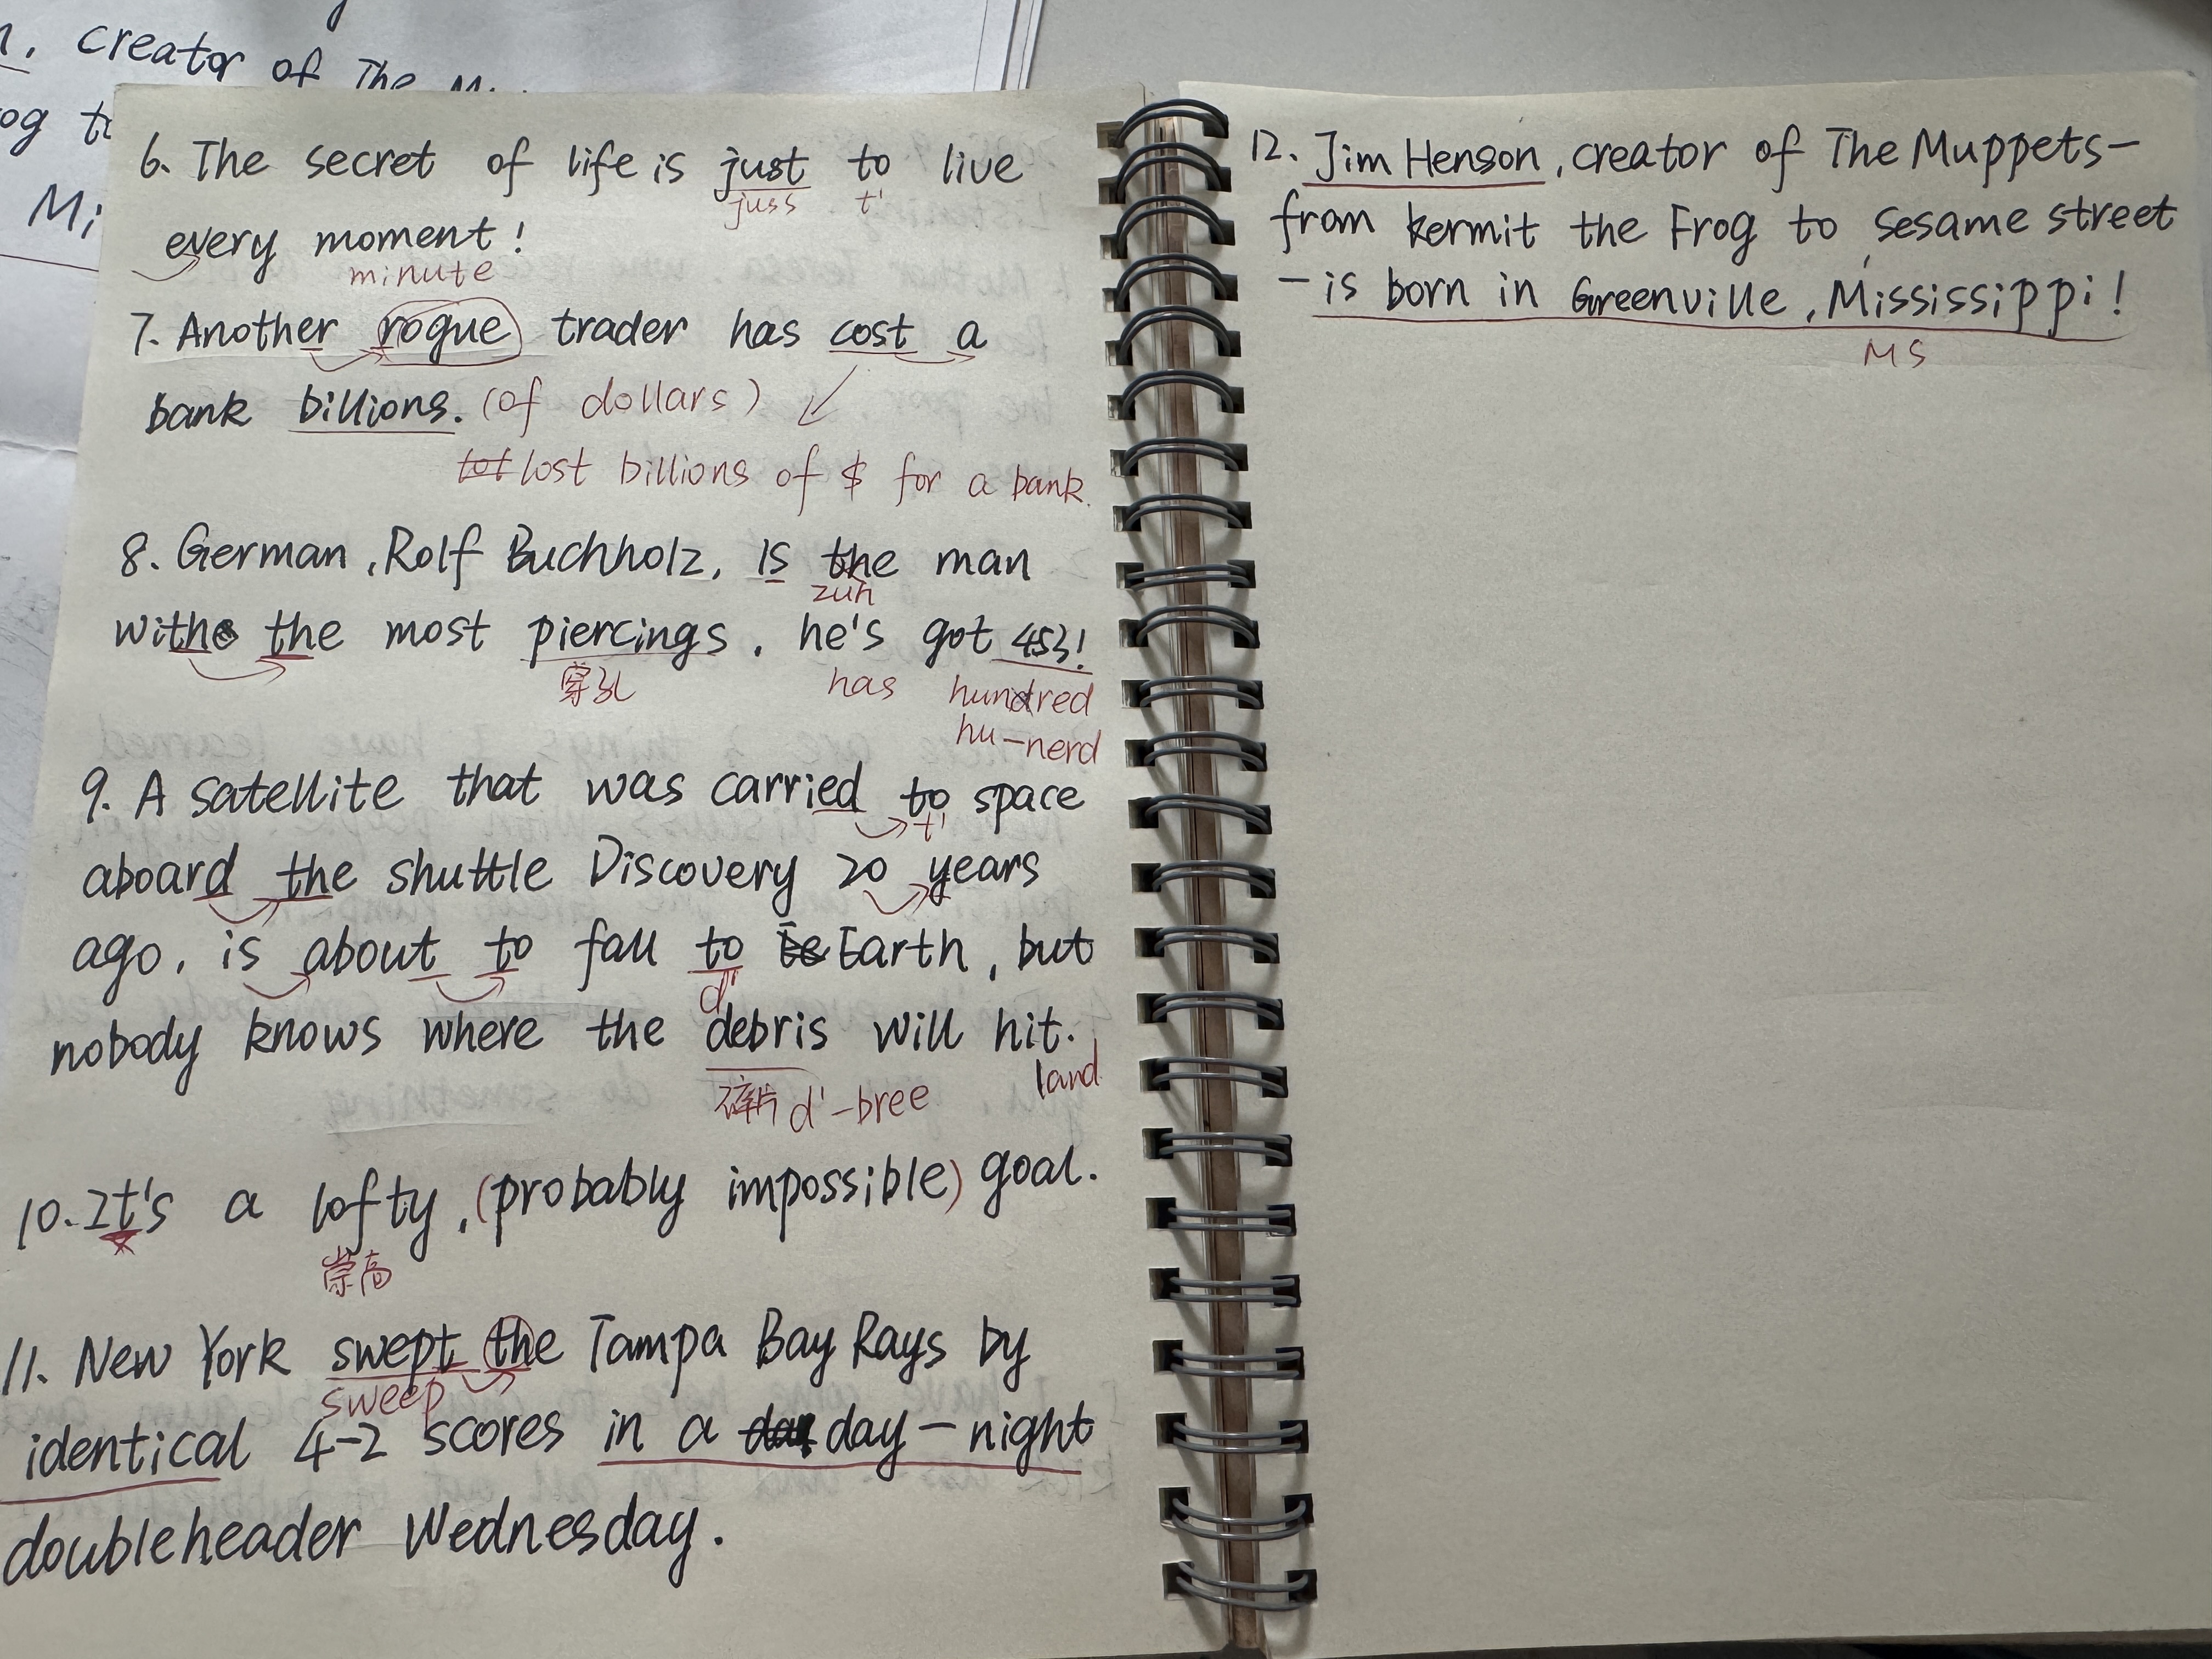 creator of The
og to
Mi
6. The secret of life is just to live
juss t'
every moment!
minute
7. Another rogue trader has cost a
bank billions. (of dollars)
lost billions of $ for a bank.
8. German, Rolf Buchholz, is the man
zuh
with the most piercings. he's got 453!
穿孔 has hundred
hu-nerd
9. A satellite that was carried to space
t'
aboard the shuttle Discovery 20 years
ago, is about to fall to Earth, but
d'
nobody knows where the debris will hit.
碎片 d'-bree land
10. It's a lofty, (probably impossible) goal.
崇高
11. New York swept the Tampa Bay Rays by
sweep
identical 4-2 scores in a day-night
doubleheader Wednesday.
12. Jim Henson, creator of The Muppets-
from kermit the Frog to sesame street
- is born in Greenville, Mississippi!
MS